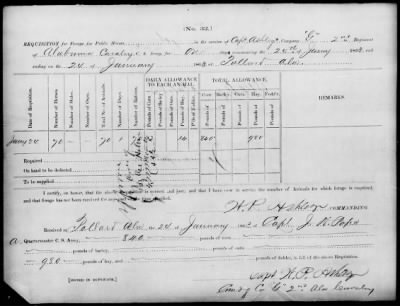 (No. 32.)
REQUISITION for Forage for Public Horses, in the service of Capt Ashley's Company "G" 2nd Regiment
of Alabama Cavalry for One commencing the 24th of January 1863, and
ending on the 24 of January 1863 at Pollard Ala.
DAILY ALLOWANCE TO EACH ANIMAL.
TOTAL ALLOWANCE.
Date of Requisition.
Number of Horses.
Number of Mules.
Total No. of Animals.
Number of Days.
Number of Rations.
Pounds of Corn.
Pounds of Barley.
Pounds of Oats.
Pounds of Hay.
Pounds of Fodder.
Corn.
Barley.
Oats.
Hay.
Fodder.
REMARKS.
Jany 24 70 70 1 70 12 14 840 980
Required
On hand to be deducted
To be supplied
I certify, on honor, that the above requisition is correct and just; and that I have now in service the number of Animals for which forage is required,
and that forage has not been received for
W. P. Ashley COMMANDING.
Received at Pollard Ala on 24 of January 1863 of Capt J. K. Pope
Quartermaster C. S. Army, 840 pounds of corn,
pounds of barley, pounds of oats,
980 pounds of hay, pounds of fodder, in full of the above Requisition.
[SIGNED IN DUPLICATE.]
Capt W. P. Ashley
Comdg Co "G" 2nd Ala Cavalry